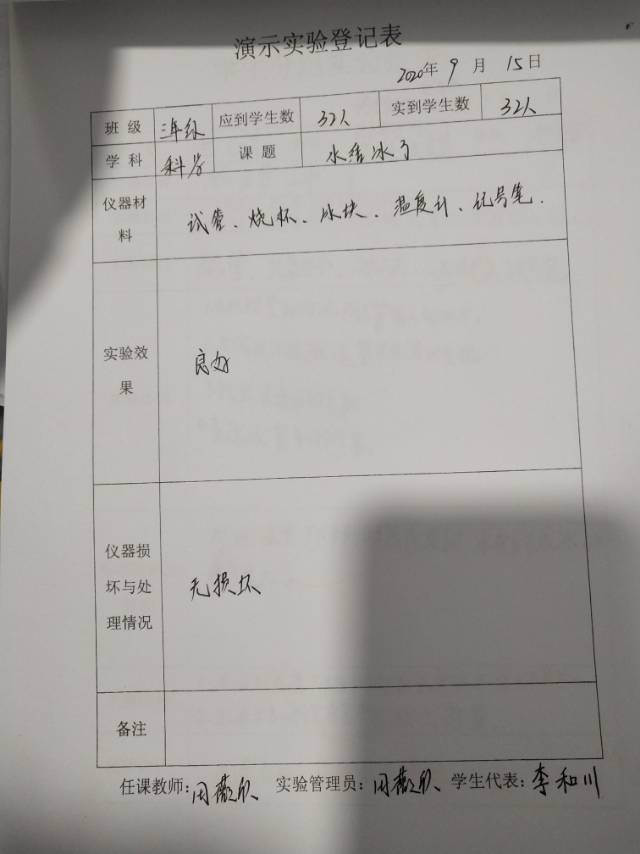 演示实验登记表
2020年 9 月 15日
班 级 三年级 应到学生数 32人 实到学生数 32人
学 科 科学 课 题 水结冰了
仪器材料 试管、烧杯、冰块、温度计、记号笔.
实验效果 良好
仪器损坏与处理情况 无损坏
备注
任课教师: 实验管理员: 学生代表: 李和川